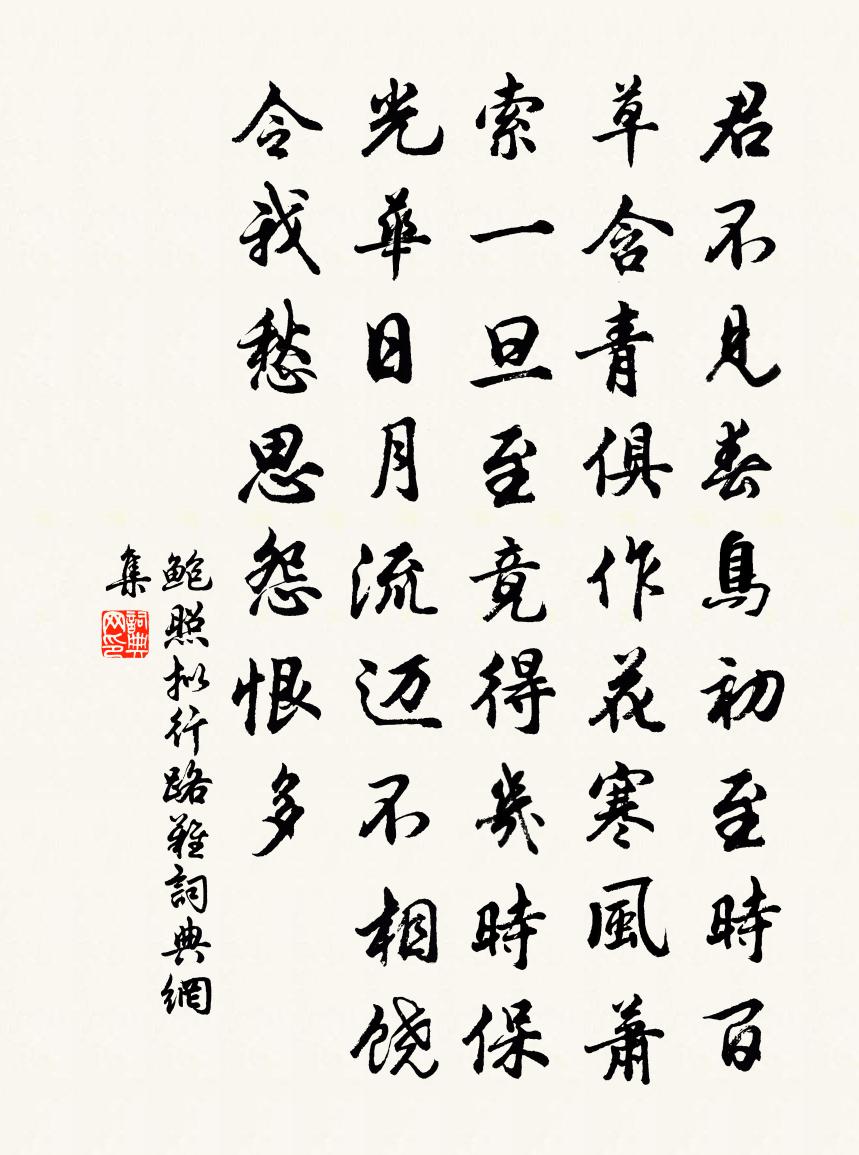 君不見春鳥初至時百
草含青俱作花寒風蕭
索一旦至竟得幾時保
光華日月流迈不相饶
令我愁思怨恨多
鲍照拟行路難詞典網
集
詞典
网印